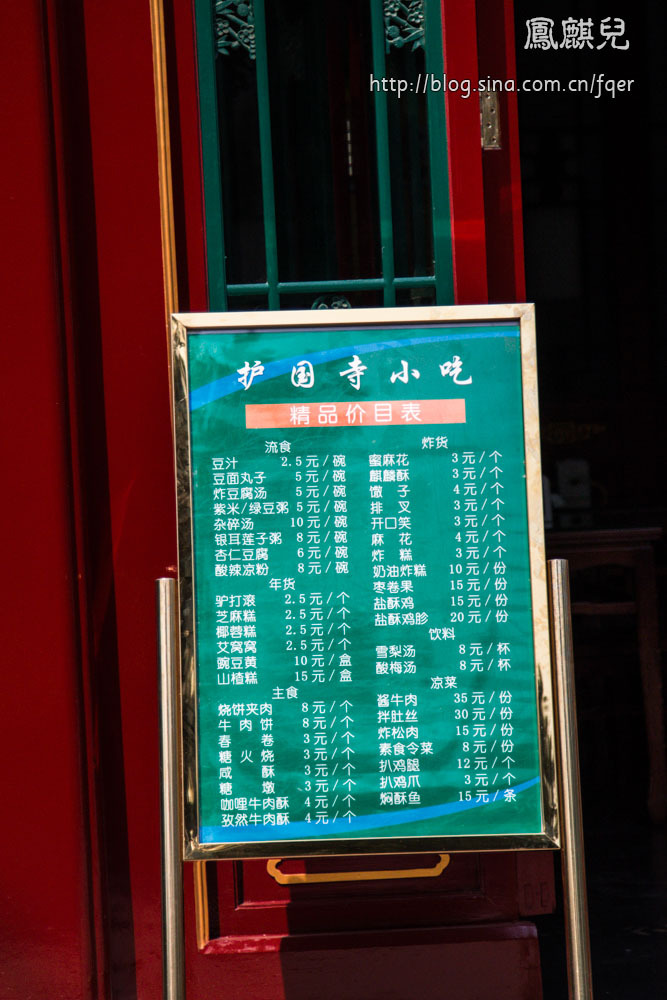 鳳麒兒
http://blog.sina.com.cn/fqer
护国寺小吃
精品价目表
流食
豆汁 2.5元/碗
豆面丸子 5元/碗
炸豆腐汤 5元/碗
紫米/绿豆粥 5元/碗
杂碎汤 10元/碗
银耳莲子粥 8元/碗
杏仁豆腐 6元/碗
酸辣凉粉 8元/碗
年货
驴打滚 2.5元/个
芝麻糕 2.5元/个
椰蓉糕 2.5元/个
艾窝窝 2.5元/个
豌豆黄 10元/盒
山楂糕 15元/盒
主食
烧饼夹肉 8元/个
牛肉饼 8元/个
春卷 3元/个
糖火烧 3元/个
咸酥 3元/个
糖墩 3元/个
咖哩牛肉酥 4元/个
孜然牛肉酥 4元/个
炸货
蜜麻花 3元/个
麒麟酥 3元/个
馓子 4元/个
排叉 3元/个
开口笑 3元/个
麻花 4元/个
炸糕 3元/个
奶油炸糕 10元/份
枣卷果 15元/份
盐酥鸡 15元/份
盐酥鸡胗 20元/份
饮料
雪梨汤 8元/杯
酸梅汤 8元/杯
凉菜
酱牛肉 35元/份
拌肚丝 30元/份
炸松肉 15元/份
素食令菜 8元/份
扒鸡腿 12元/个
扒鸡爪 3元/个
焖酥鱼 15元/条